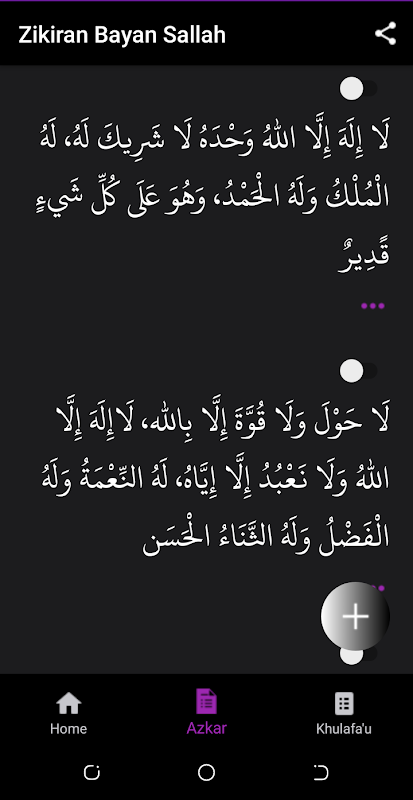 Zikiran Bayan Sallah
لَا إِلَهَ إِلَّا اللهُ وَحْدَهُ لَا شَرِيكَ لَهُ، لَهُ
الْمُلْكُ وَلَهُ الْحَمْدُ، وَهُوَ عَلَى كُلِّ شَيءٍ
قًدِيرٌ
لَا حَوْلَ وَلَا قُوَّةَ إِلَّا بِالله، لَاإِلَهَ إِلَّا
اللهُ وَلَا نَعْبُدُ إِلَّا إِيَّاهُ، لَهُ النِّعْمَةُ وَلَهُ
الْفَضْلُ وَلَهُ الثَّنَاءُ الْحَسَن
Home
Azkar
Khulafa'u